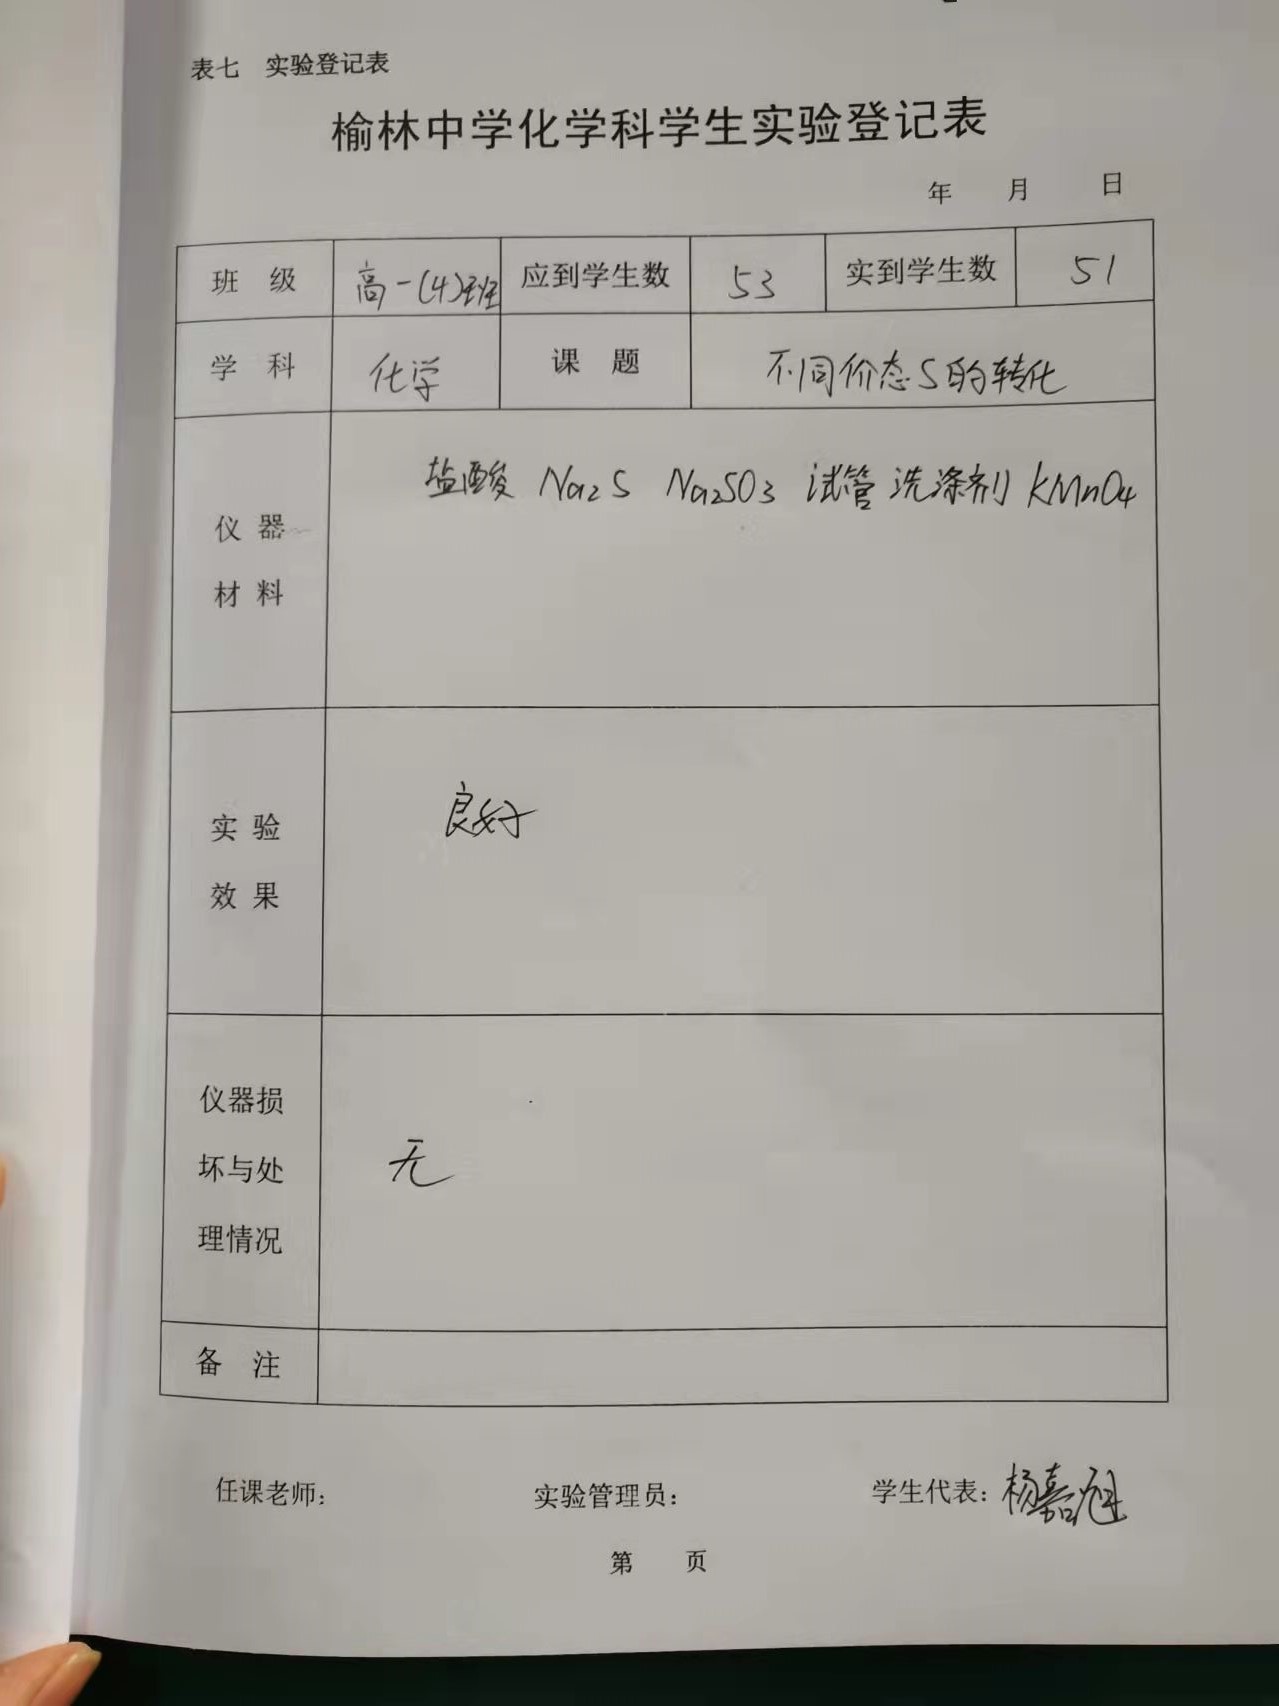 表七 实验登记表
榆林中学化学科学生实验登记表
年 月 日
班 级 高一(4)班 应到学生数 53 实到学生数 51
学 科 化学 课 题 不同价态S的转化
仪 器
材 料
盐酸 Na₂S Na₂SO₃ 试管 洗涤剂 KMnO₄
实 验
效 果
良好
仪器损
坏与处
理情况
无
备 注
任课老师: 实验管理员: 学生代表: 杨嘉旭
第 页